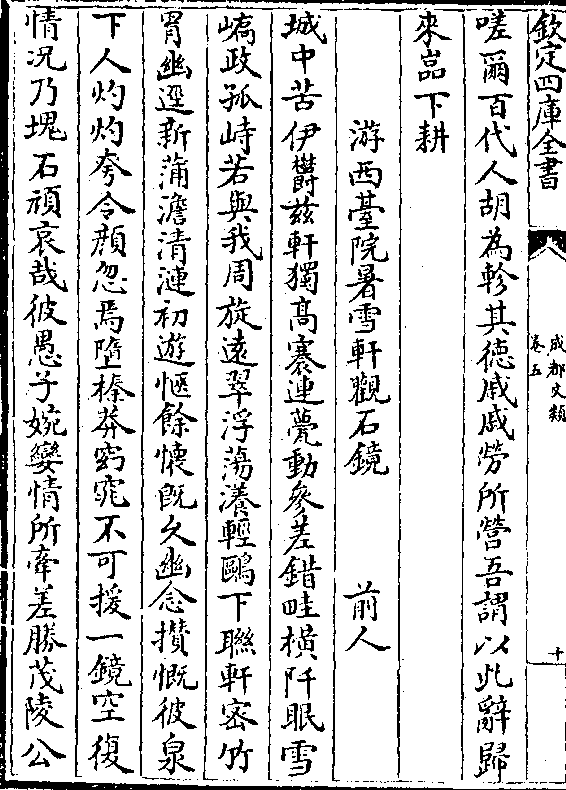 欽定四庫全書
成都文類
卷五
十
嗟爾百代人胡為軫其德戚戚勞所營吾謂以此辭歸
來嵓下耕
游西臺院暑雪軒觀石鏡 前人
城中苦伊欝兹軒獨髙褰連甍動參差錯畦橫阡眠雪
嶠政孤峙若與我周旋遠翠浮蕩瀁輕鷗下聯軒宻竹
罥幽逕新蒲澹清漣初遊愜餘懐既久幽念攅慨彼泉
下人灼灼夸令顔忽焉墮榛莽窈窕不可援一鏡空復
情况乃塊石頑哀哉彼愚子婉孌情所牽差勝茂陵公